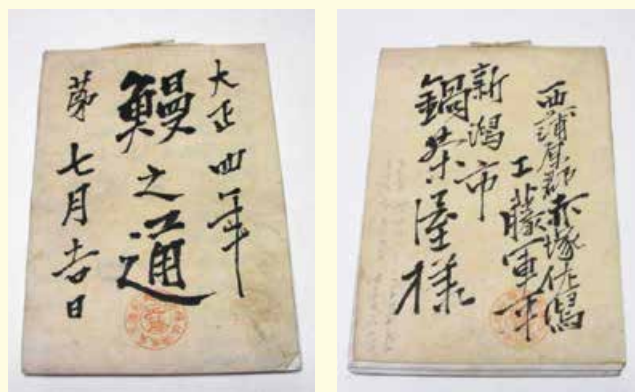 大正四年
鰻之通
第七月吉日
西蒲原郡赤塚佐潟
工藤軍平
新潟市
鍋茶屋様